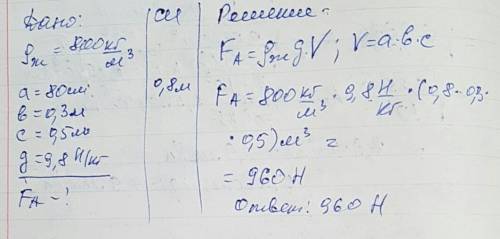 Дано:
ρж = 8000 кг/м³
a = 80 см
в = 0,3 м
c = 0,5 м
g = 9,8 Н/кг
FA - ?
СИ
0,8 м
Решение:
FA = ρж g·V ; V = a·в·c
FA = 800 кг/м³ · 9,8 Н/кг · (0,8 · 0,3·
· 0,5) м³ =
= 960 Н
Ответ: 960 Н